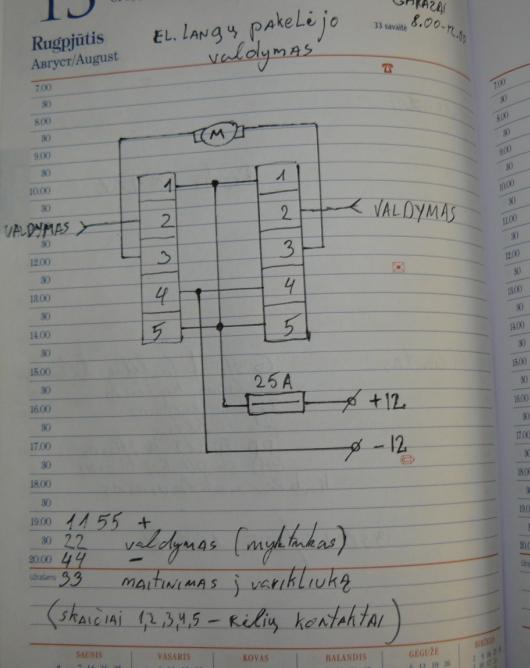 13
GARAŽAI
8.00-12.00
33 savaitė
Rugpjūtis
Август/August
EL. LANGŲ PAKELĖJO
VALDYMAS
7.00
30
8.00
30
9.00
30
10.00
30
30
12.00
30
13.00
30
14.00
30
15.00
30
16.00
30
17.00
30
18.00
30
19.00
30
20.00
M
1 1
VALDYMAS 2 2 VALDYMAS
3 3
4 4
5 5
25A
+12
-12
11 55 +
22 valdymas (myktukas)
44 -
33 MAITINIMAS Į VARIKLIUKĄ
(SKAIČIAI 1,2,3,4,5 - RĖLIŲ KONTAKTAI)
SAUSIS VASARIS KOVAS BALANDIS GEGUŽĖ